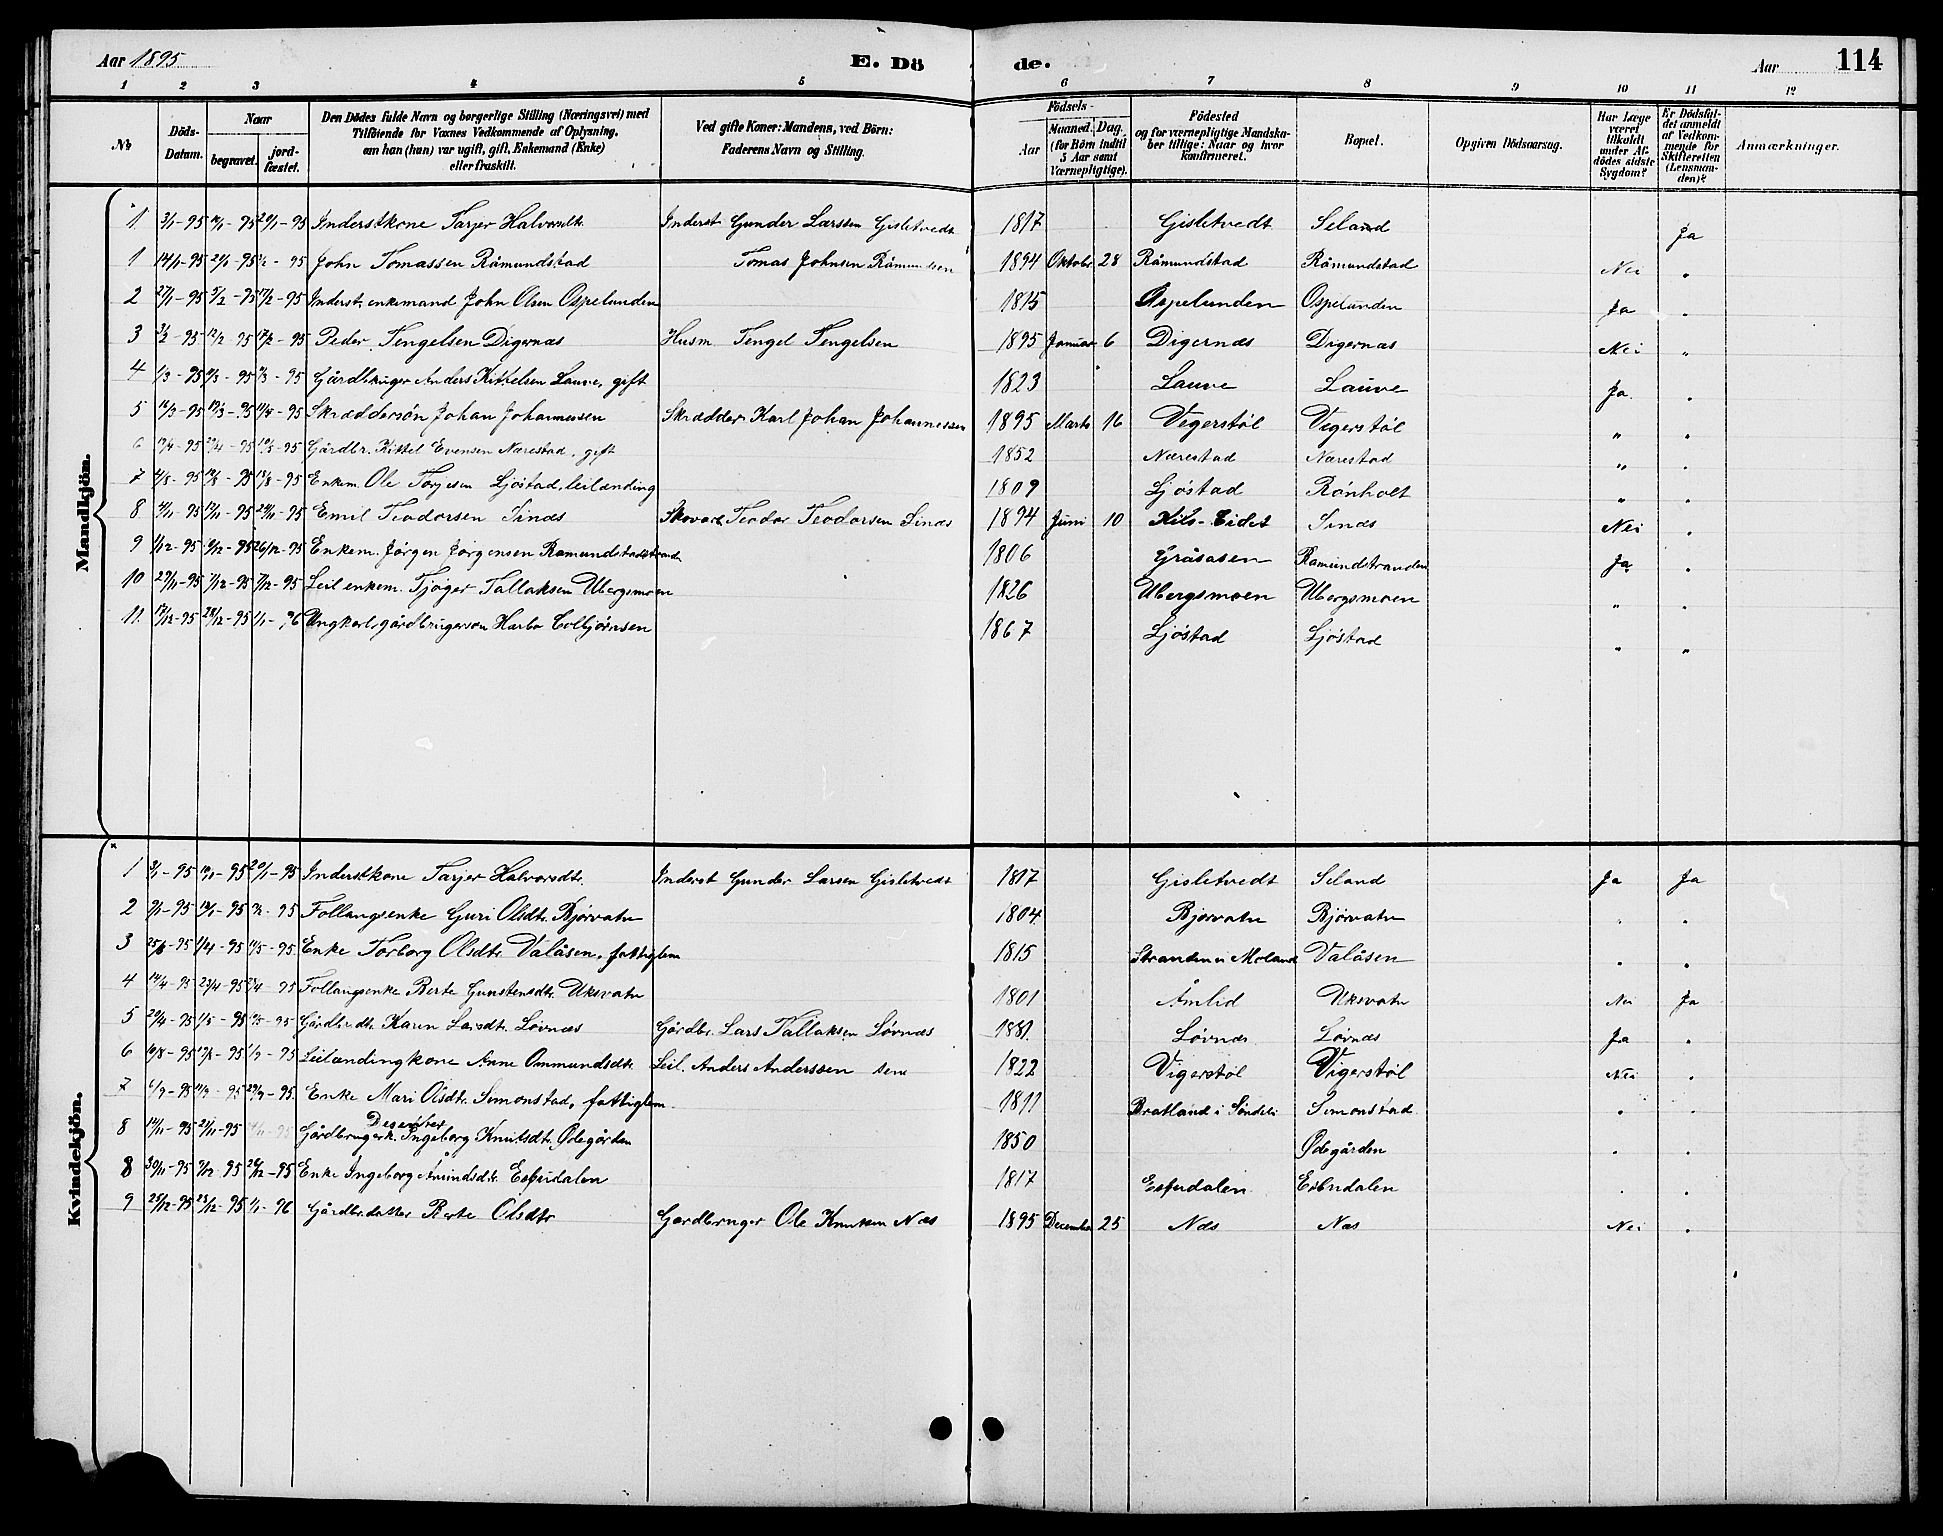 Aar 1895 E. Dö de. Aar 114
1 2 3 4 5 6 7 8 9 10 11 12
№ Döds-Datum. Naar begravet. jord-fæstet. Den Dödes fulde Navn og borgerlige Stilling (Næringsvei) med Tilföiende for Voxnes Vedkommende af Oplysning, om han (hun) var ugift, gift, Enkemand (Enke) eller fraskilt. Ved gifte Koner: Mandens, ved Börn: Faderens Navn og Stilling. Födsels- Aar Maaned. Dag. (for Börn indtil 5 Aar samt Værnepligtige). Födested og for værnepligtige Mandska-ber tillige: Naar og hvor konfirmeret. Bopæl. Opgiven Dödsaarsag. Har Læge været tilkaldt under Af-dödes sidste Sygdom? Er Dödsfal-det anmeldt af Vedkom-mende for Skifteretten (Lensman-den)? Anmærkninger.
Mandkjön.
1 3/1-95 95 20/1-95 Inderstkone Tarjer Halvorsdtr. Inderst Gunder Larssen Gisletvedt 1817 Gisletvedt Seland Ja
1 14/1-95 21/1-95 95 John Tomassen Råmundstad Tomas Johnsen 1894 Oktobr 28 Råmundstad Råmundstad Nei "
2 27/1-95 5/2-95 17/2-95 Inderst. enkemand John Olsen Ospelunden 1815 Ospelunden Ospelunden Ja "
3 95 12/2-95 17/2-95 Peder Tengelsen Digernæs Husm. Tengel Tengelsen 1895 Januar 6 Digernæs Digernæs Nei "
4 1/3-95 95 95 Gårdbruger Anders Kittelsen Lauve, gift 1823 Lauve Lauve Ja "
5 95 95 95 Skræddersøn Johan Johannessen Skrædder Karl Johan Johannessen 1895 Marts 16 Vegerstøl Vegerstøl " "
6 95 95 95 Gårdbr. Kittel Evensen Nærestad, gift 1852 Nærestad Nærestad " "
7 95 95 95 Enkem. Ole Torjesen Ljøstad, leilænding 1809 Ljøstad Rønholt " "
8 95 95 95 Emil Teodorsen Sinds Teodor Teodorsen Sinds 1894 Juni 10 Kils-Eidet Sinds Nei "
9 95 95 26/12-95 Enkem. Jørgen Jørgensen Ramundstadstrand 1806 Gråsåsen Ramundstranden Ja "
10 29/11-95 7/12-95 7/12-95 Leil. enkem. Tjøger Tallaksen Ubergsmoen 1826 Ubergsmoen Ubergsmoen " "
11. 95 28/12-95 1/1-96 Ungkarl, gårdbrugersøn Harbo Colbjørnsen 1867 Ljøstad Ljøstad " "
Kvindekjön.
1 3/1-95 95 20/1-95 Inderstkone Tarjer Halvorsdtr. Inderst Gunder Larsen Gisletvedt 1817 Gisletvedt Seland Ja Ja
2 95 95 95 Follaugsenke Guri Olsdtr. Bjørvatn 1804 Bjørvatn Bjørvatn " "
3 95 95 95 Enke Torborg Olsdtr. Valåsen, fattiglem 1815 Stranden i Moland Valåsen " "
4 14/4-95 23/4-95 95 Follaugsenke Berte Gunstensdtr. Uksvatn 1801 Åmlid Uksvatn Nei Ja
5 20/4-95 1/5-95 95 Gårdbr.dtr. Karen Larsdtr. Løvnæs Gårdbr. Lars Tallaksen Løvnæs 1881 Løvnæs Løvnæs Ja "
6 95 95 95 Leilændingkone Anne Ommundsdtr. Leil. Anders Anderssen 1822 Vigerstøl Vigerstøl Nei "
7 6/9-95 95 29/9-95 Enke Mari Olsdtr. Simonstad, fattiglem 1811 Bratland i Søndele Simonstad " "
8 95 21/11-95 95 Gårdbrugerk. Ingeborg Knutsdtr. Ødegården 1850 Ødegården " "
8 30/11-95 95 95 Enke Ingeborg Åmundsdtr. Esbudalen 1817 Esbudalen Esbudalen " "
9 25/12-95 95 1/1-96 Gårdbr.datter Berte Olsdtr Gårdbruger Ole Knutsen Næs 1895 December 25 Næs Næs Nei "